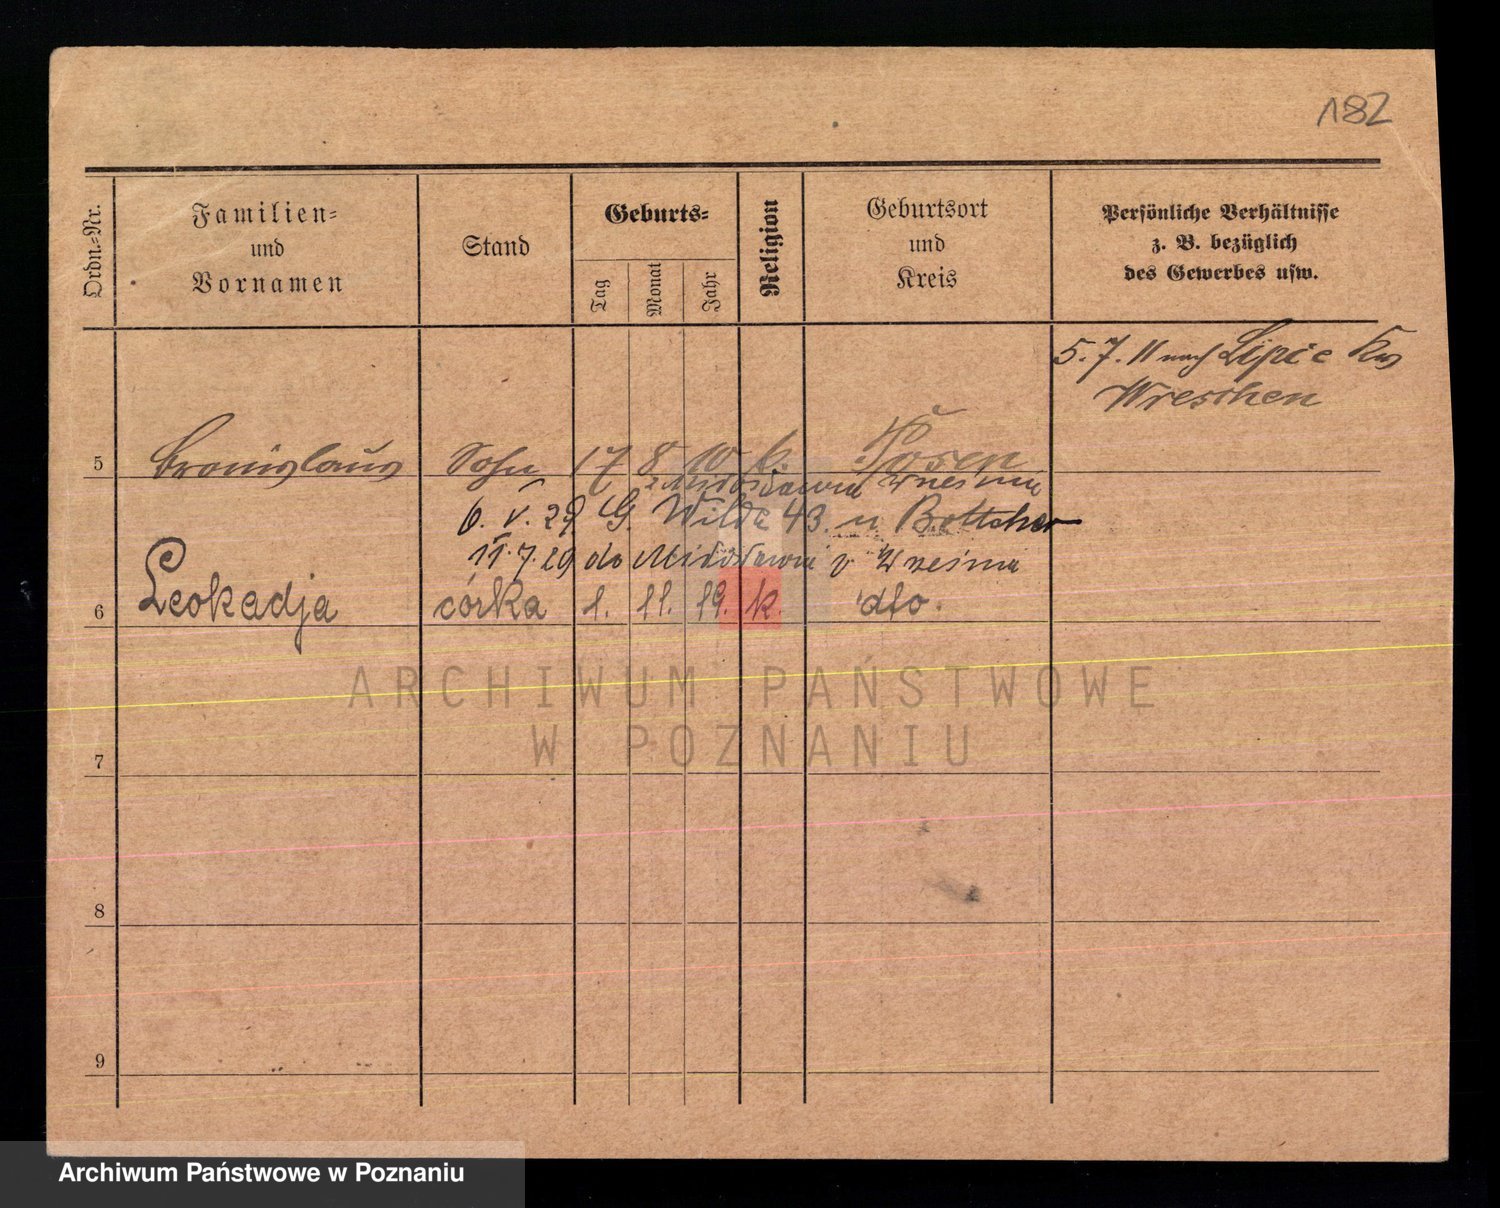 182
Ordn.-Nr.
Familien-
und
Vornamen
Stand
Geburts-
Tag
Monat
Jahr
Religion
Geburtsort
und
Kreis
Persönliche Verhältnisse
z. B. bezüglich
des Gewerbes usw.
5. 7. 11 nach Lipie Krs
Wreschen
5 Bronislaus Sohn 17 8 10 k. Posen
z Miłosławia Września
6. V. 29 G. Wilda 43 u Bottcher
11. 7. 29 do Miłosławia Września
6 Leokadja córka 1. 11. 19. k. dto.
ARCHIWUM PAŃSTWOWE
W POZNANIU
7
8
9
Archiwum Państwowe w Poznaniu